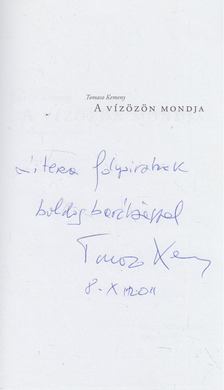 Tomaso Kemeny
A VÍZÖZÖN MONDJA
Litera folyóiratnak
boldog barátsággal
Tomaso Kemeny
8-X-2011